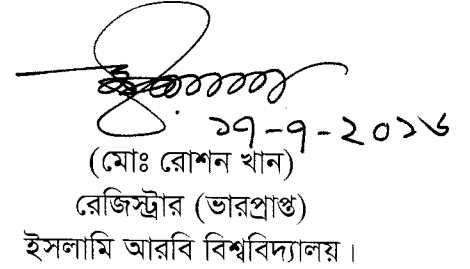 ১৭-৭-২০১৬
(মোঃ রোশন খান)
রেজিস্ট্রার (ভারপ্রাপ্ত)
ইসলামি আরবি বিশ্ববিদ্যালয়।